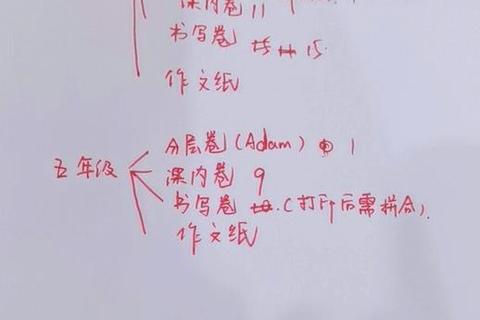 课内卷 11
书写卷 15
作文纸
五年级
分层卷(Adam) 1
课内卷 9
书写卷 (打印后需拼合).
作文纸